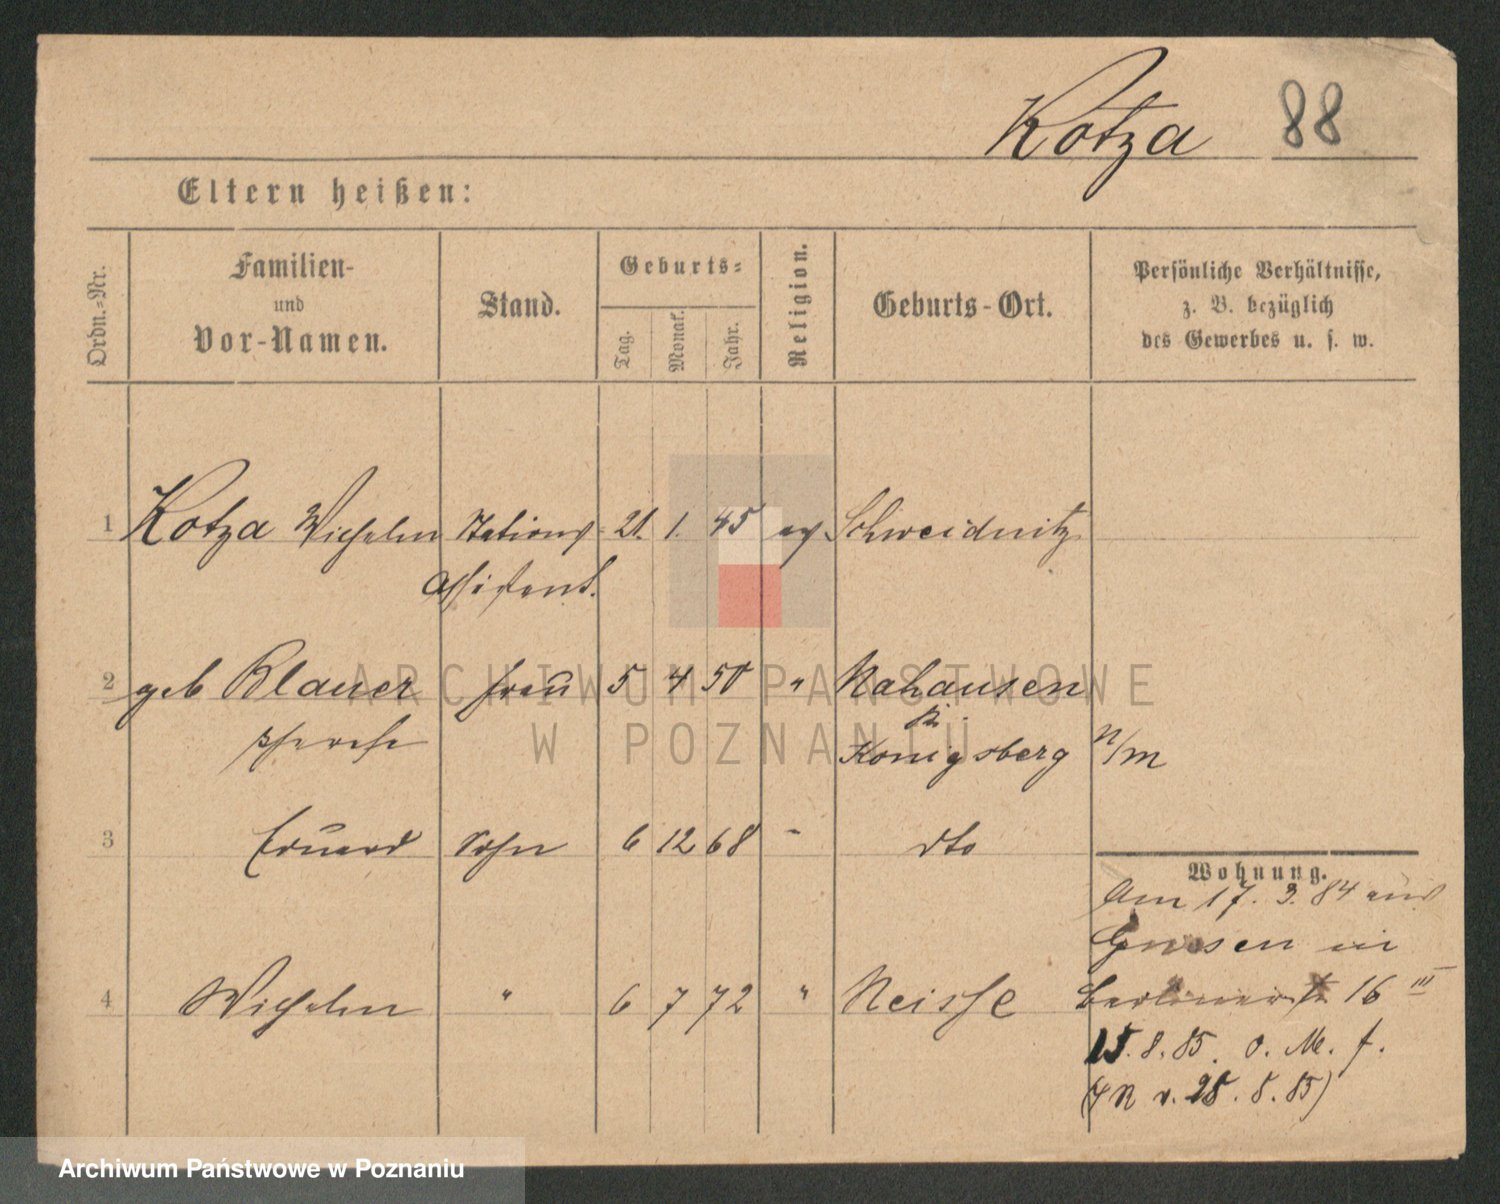 Kotza 88
Eltern heißen:
Ordn.-Nr.
Familien-
und
Vor-Namen.
Stand.
Geburts-
Tag.
Monat.
Jahr.
Religion.
Geburts-Ort.
Persönliche Verhältnisse,
z. B. bezüglich
des Gewerbes u. s. w.
1 Kotza Wilhelm Stations- 21. 1. 45 ev Schweidnitz
Assistent.
2 geb Blauer Frau 5 4 50 " Nahausen
Kr.
Königsberg n/m
3 Eduard Sohn 6 12 68 " dto
Wohnung.
Am 17. 3. 84 aus
Gnesen in
4 Wilhelm " 6 7 72 " Neisse Berlinerstr 16 III
15. 8. 85. o. M. f.
(J N v. 28. 8. 85)
ARCHIWUM PAŃSTWOWE
W POZNANIU
Archiwum Państwowe w Poznaniu